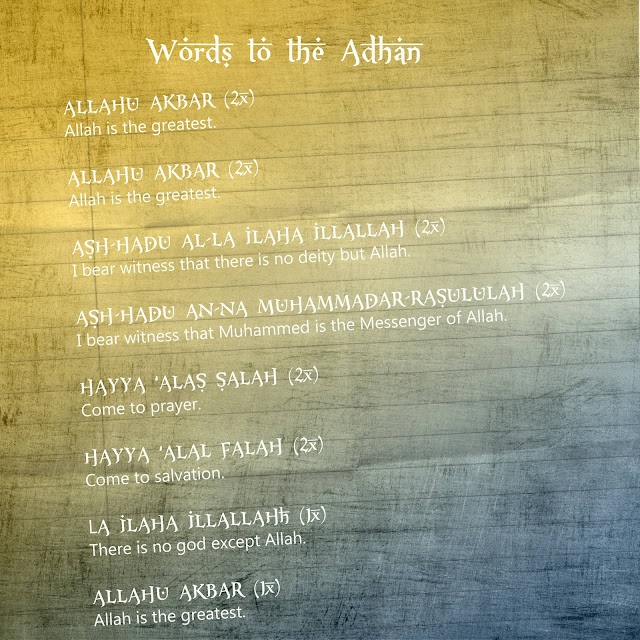 Words to the Adhan
ALLAHU AKBAR (2x)
Allah is the greatest.
ALLAHU AKBAR (2x)
Allah is the greatest.
ASH-HADU AL-LA ILAHA ILLALLAH (2x)
I bear witness that there is no deity but Allah.
ASH-HADU AN-NA MUHAMMADAR-RASULULAH (2x)
I bear witness that Muhammed is the Messenger of Allah.
HAYYA 'ALAS SALAH (2x)
Come to prayer.
HAYYA 'ALAL FALAH (2x)
Come to salvation.
LA ILAHA ILLALLAHh (1x)
There is no god except Allah.
ALLAHU AKBAR (1x)
Allah is the greatest.